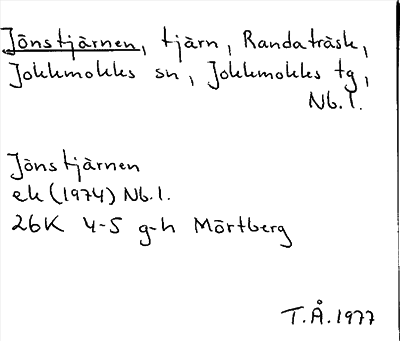 Jönstjärnen, tjärn, Randaträsk,
Jokkmokks sn, Jokkmokks tg,
Nb.l.
Jönstjärnen
ek (1974) Nb.l.
26K 4-5 g-h Mörtberg
T.Å.1977